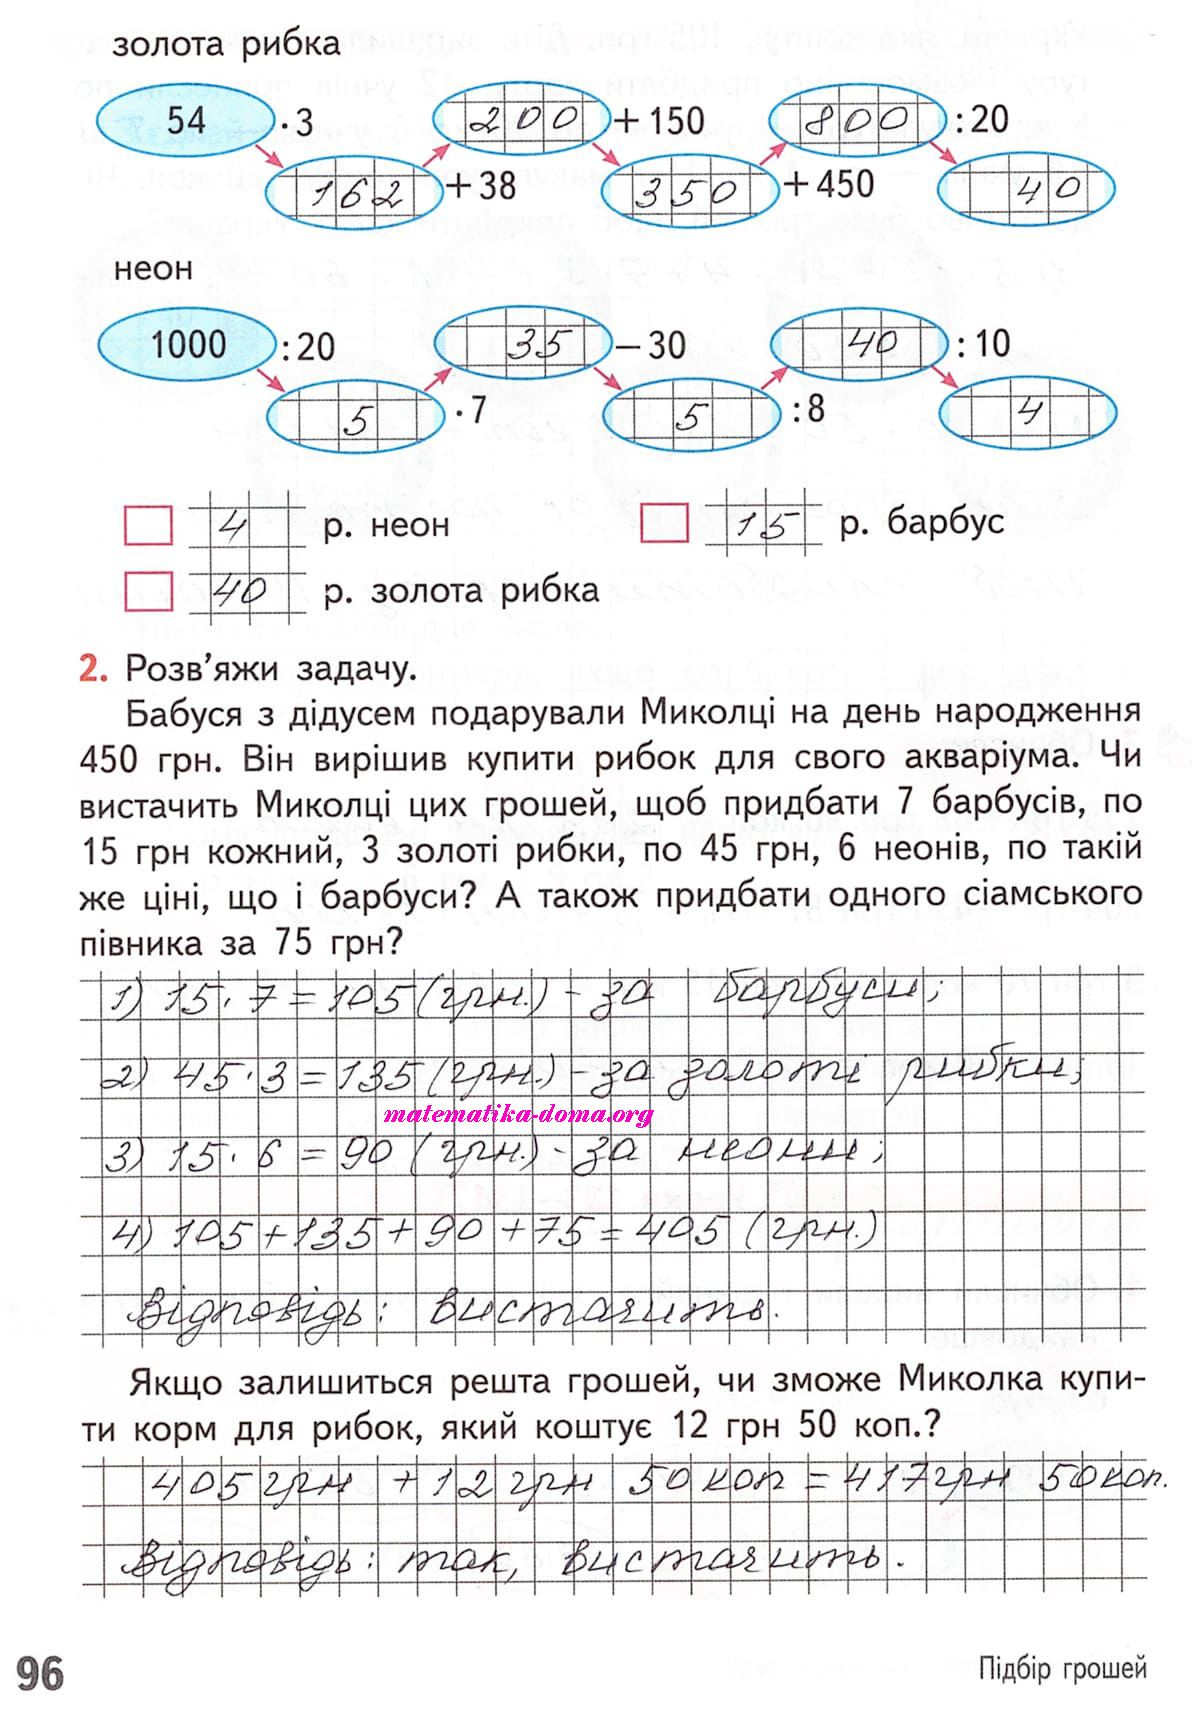 золота рибка
54 · 3 200 +150 800 :20
162 +38 350 +450 40
неон
1000 :20 35 −30 40 :10
5 ·7 5 :8 4
4 р. неон 15 р. барбус
40 р. золота рибка
2. Розв’яжи задачу.
Бабуся з дідусем подарували Миколці на день народження
450 грн. Він вирішив купити рибок для свого акваріума. Чи
вистачить Миколці цих грошей, щоб придбати 7 барбусів, по
15 грн кожний, 3 золоті рибки, по 45 грн, 6 неонів, по такій
же ціні, що і барбуси? А також придбати одного сіамського
півника за 75 грн?
1) 15·7=105(грн.)- за барбуси;
2) 45·3=135(грн.)-за золоті рибки;
matematika-doma.org
3) 15·6=90(грн.)-за неони;
4) 105+135+90+75=405(грн.)
Відповідь: вистачить.
Якщо залишиться решта грошей, чи зможе Миколка купи-
ти корм для рибок, який коштує 12 грн 50 коп.?
405грн +12грн 50коп=417грн 50коп.
Відповідь: так, вистачить.
96 Підбір грошей